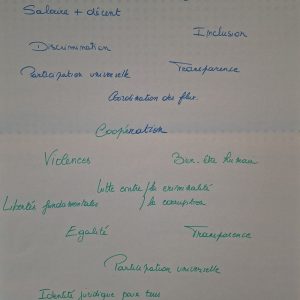 Salaire + décent
Inclusion
Discrimination
Participation universelle Transparence
Coordination des flux
Coopération
Violences Bien-être humain
Lutte contre / la criminalité
Libertés fondamentales / la corruption
Egalité Transparence
Participation universelle
Identité juridique pour tous